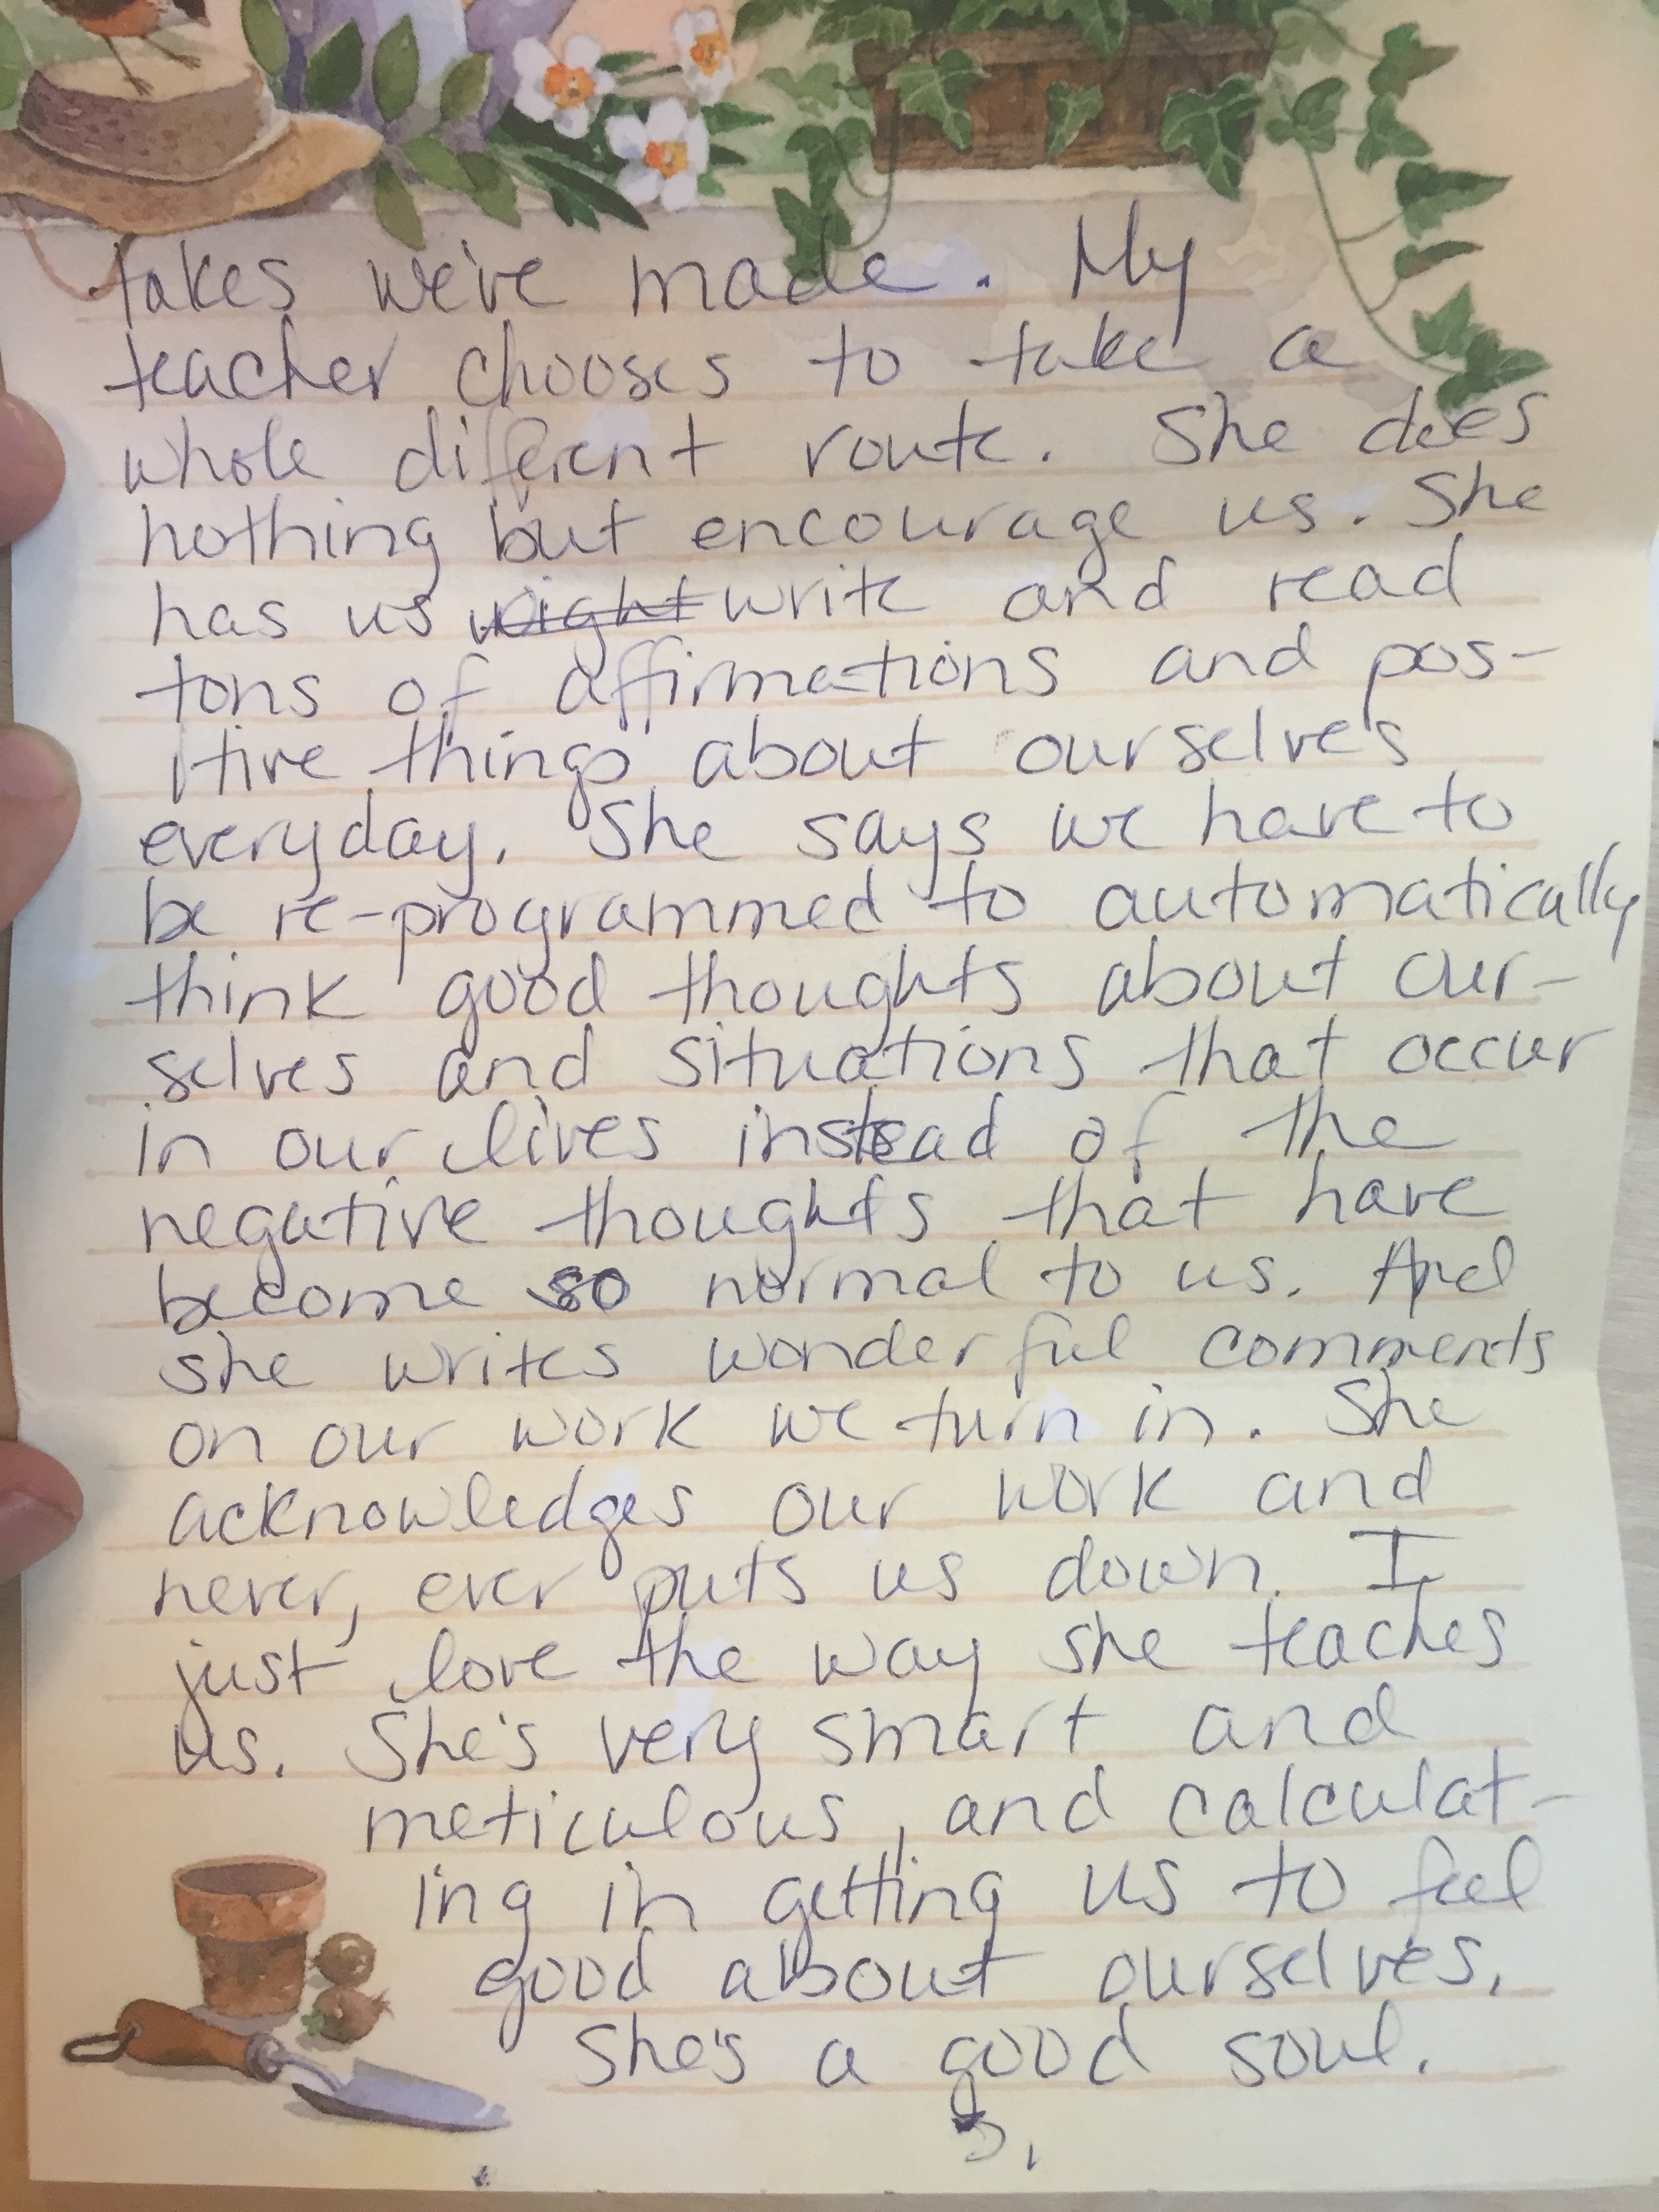 takes we've made. My
teacher chooses to take a
whole different route. She does
nothing but encourage us. She
has us wright write and read
tons of affirmations and pos-
itive things about ourselves
everyday. She says we have to
be re-programmed to automatically
think good thoughts about our-
selves and situations that occur
in our lives instead of the
negative thoughts that have
become so normal to us. And
she writes wonderful comments
on our work we turn in. She
acknowledges our work and
never, ever puts us down. I
just love the way she teaches
us. She's very smart and
meticulous, and calculat-
ing in getting us to feel
good about ourselves.
She's a good soul.
3,